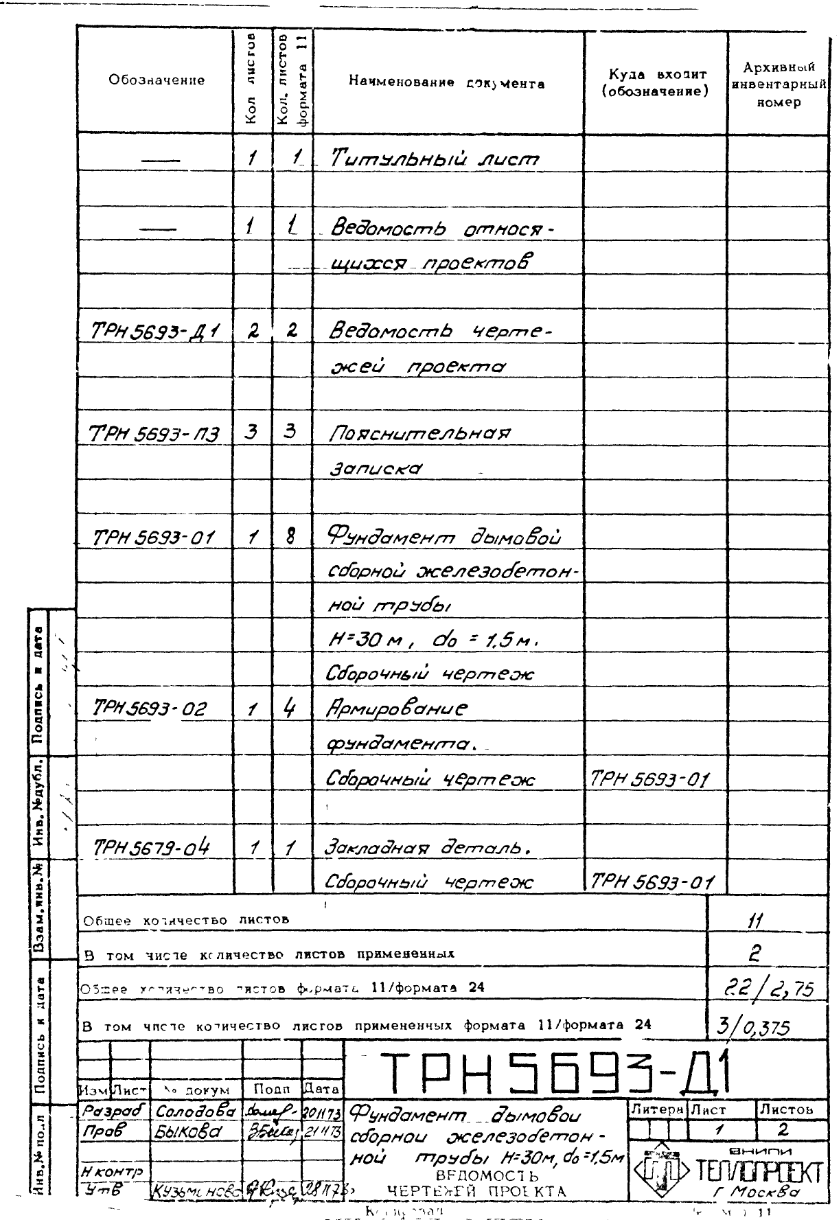 Обозначение
Кол листов
Кол. листов формата 11
Наименование документа
Куда входит
(обозначение)
Архивный
инвентарный
номер
— 1 1 Титульный лист
— 1 1 Ведомость относя-
щихся проектов
ТРН 5693-Д1 2 2 Ведомость черте-
жей проекта
ТРН 5693-ПЗ 3 3 Пояснительная
записка
ТРН 5693-01 1 8 Фундамент дымовой
сборной железобетон-
ной трубы
Н=30 м, do = 1,5 м.
Сборочный чертеж
ТРН 5693-02 1 4 Армирование
фундамента.
Сборочный чертеж ТРН 5693-01
ТРН 5679-04 1 1 Закладная деталь.
Сборочный чертеж ТРН 5693-01
Общее количество листов 11
В том числе количество листов примененных 2
Общее количество листов формата 11/формата 24 22/2,75
В том числе количество листов примененных формата 11/формата 24 3/0,375
Подпись и дата
Инв. №дубл.
Взам.инв.№
Подпись и дата
Инв.№ подл
ТРН 5693-Д1
Изм Лист № докум Подп Дата
Разраб Солодова 201173
Пров Быкова 211173
Н контр
Утв Кузьминова 281173
Фундамент дымовой
сборной железобетон-
ной трубы Н=30м, do=1,5м
ВЕДОМОСТЬ
ЧЕРТЕЖЕЙ ПРОЕКТА
Литера Лист Листов
1 2
ВНИПИ
ТЕПЛОПРОЕКТ
Г Москва